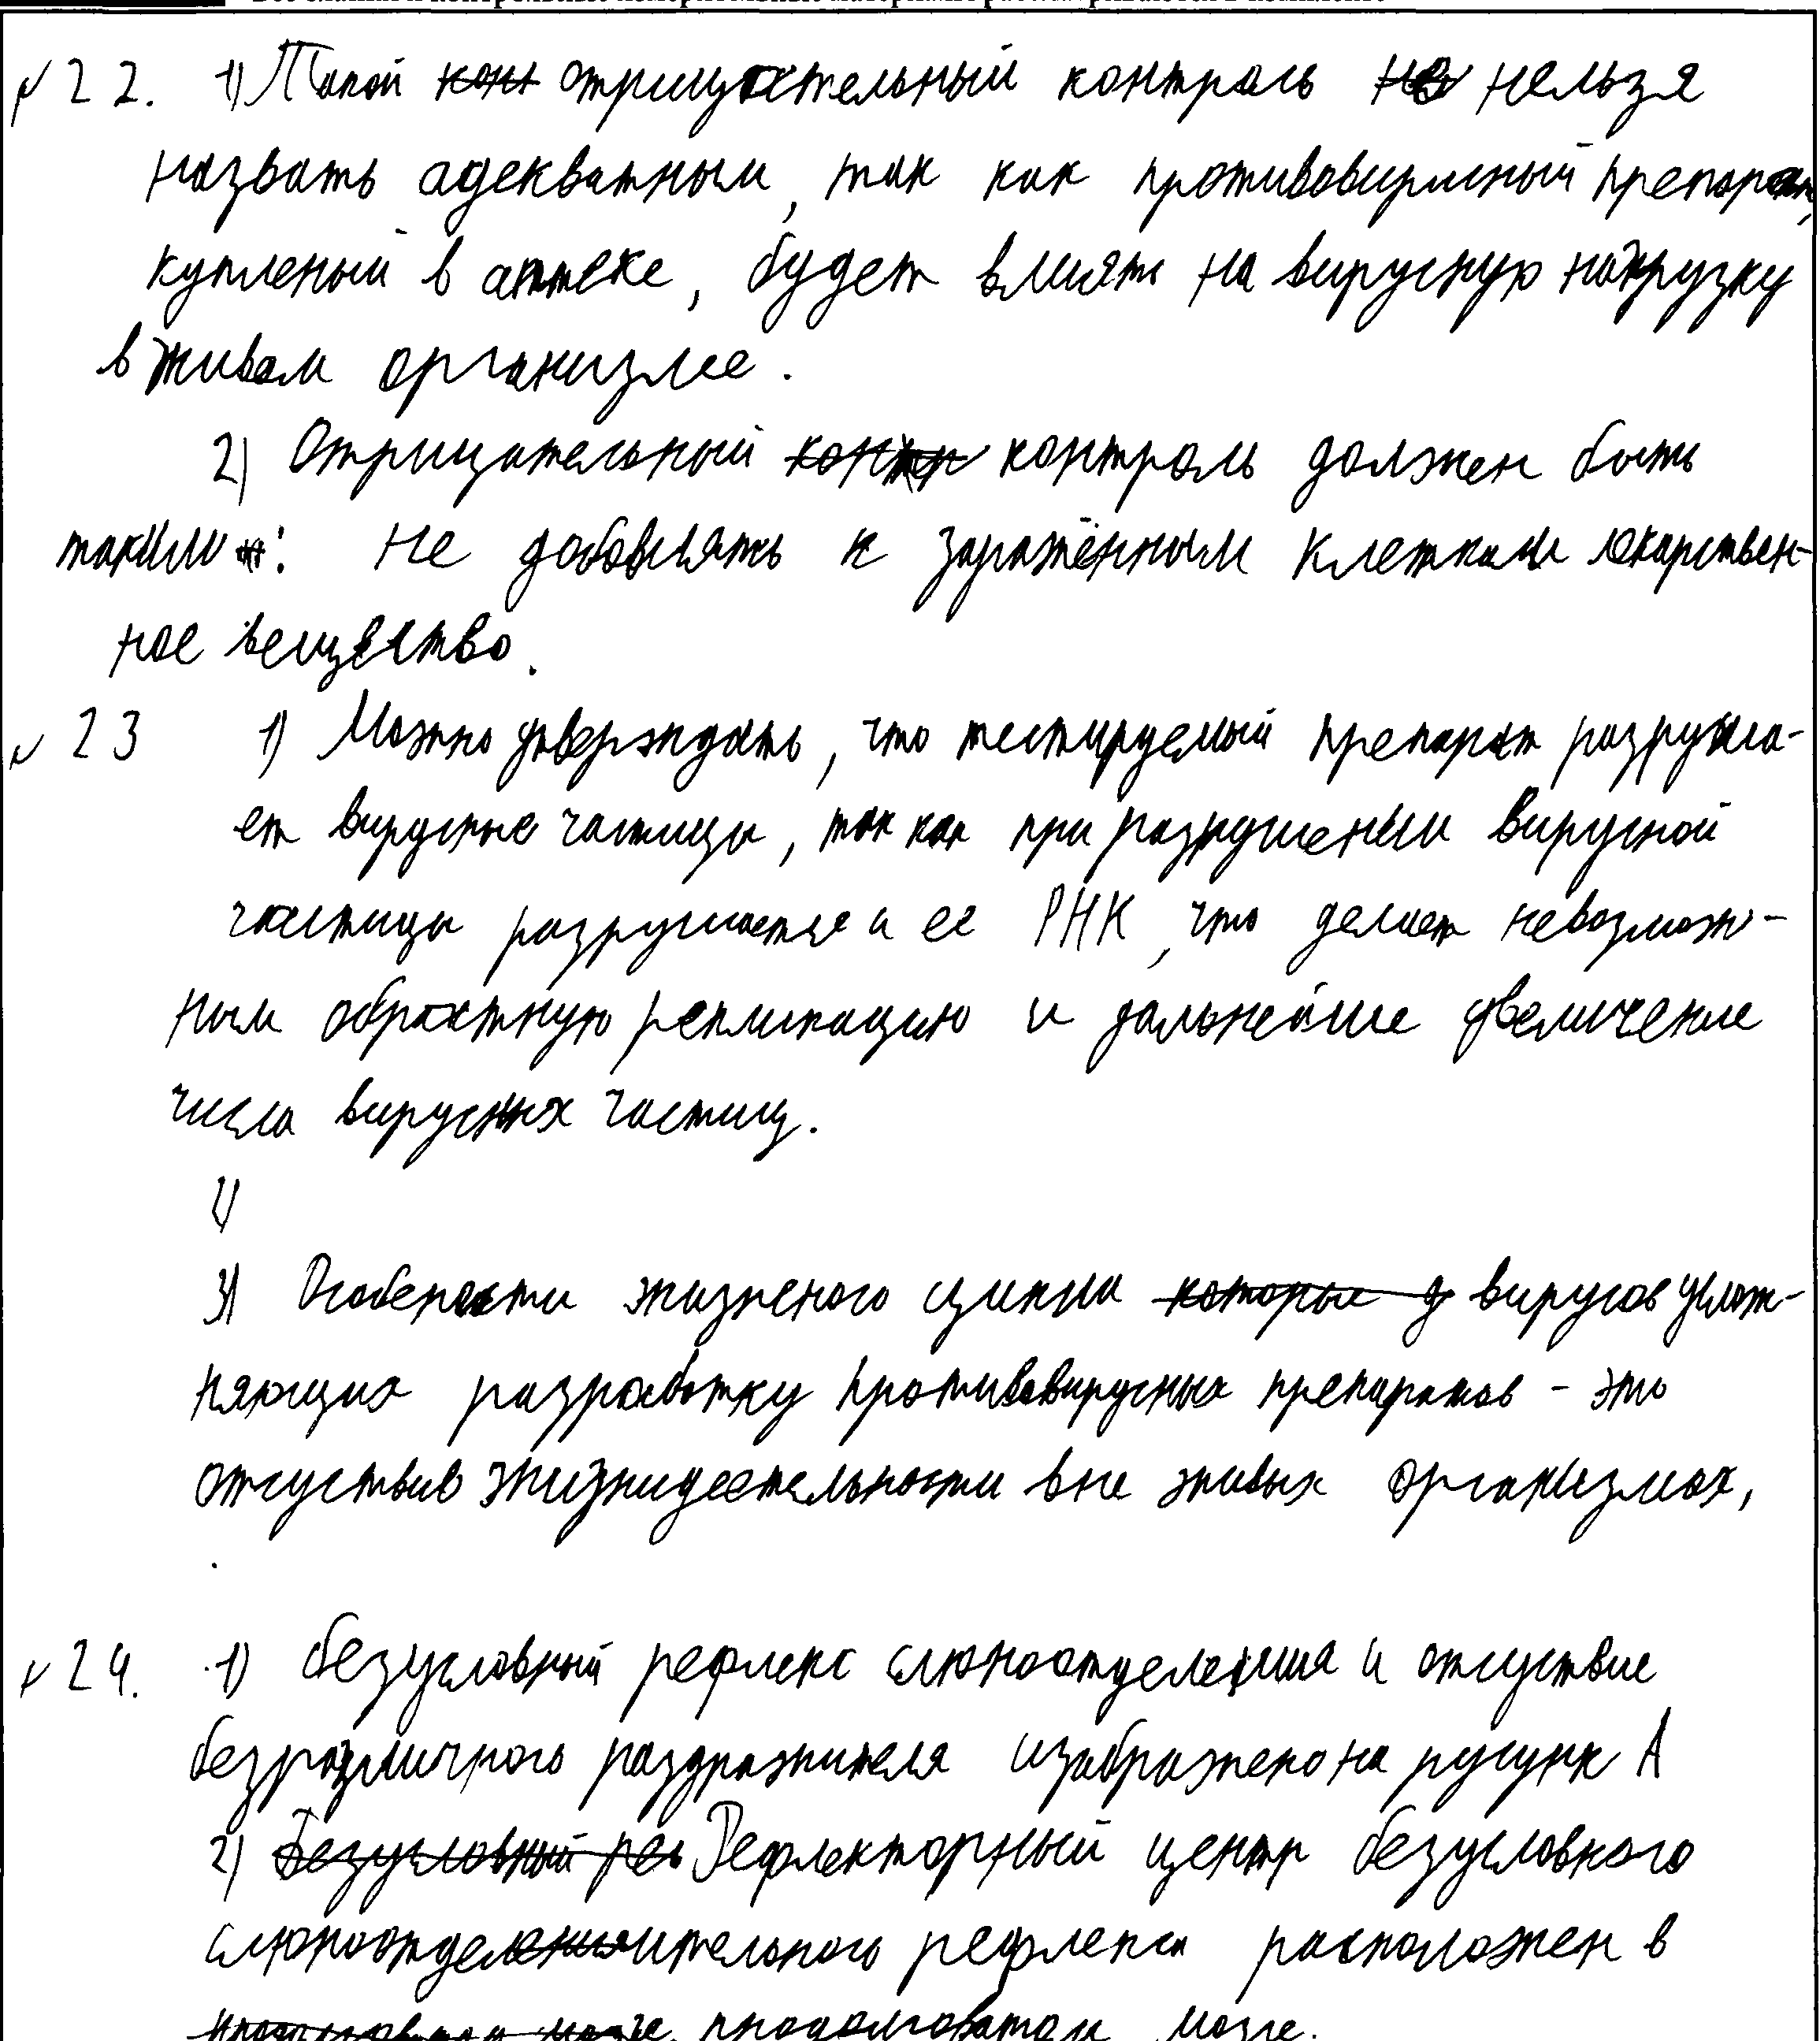 №22. 1) Такой отрицательный контроль нельзя
назвать адекватным, так как противовирусный препарат,
купленый в аптеке, будет влиять на вирусную нагрузку
в живом организме.
2) Отрицательный контроль должен быть
таким: не добавлять к заражённым клеткам лекарствен-
ное вещество.
№23 1) Можно утверждать, что тестируемый препарат разруша-
ет вирусные частицы, так как при разрушении вирусной
частицы разрушается и ее РНК, что делает невозмож-
ным обратную репликацию и дальнейше увеличение
числа вирусных частиц.
2)
3) Особености жизненого цикла вирусов услож-
няющих разработку противовирусных препаратов - это
отсуствие жизнидеятельности вне живых организмах,
№24. 1) безусловный рефлекс слюноотделения и отсуствие
безразличного раздражителя изображено на русунк А
2) Рефлекторный центр безусловного
слюноотделительного рефлекса расположен в
продолговатом мозге.